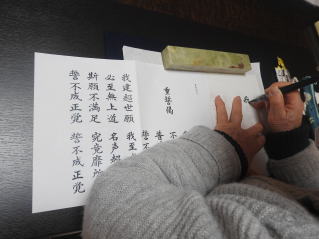 我
重誓偈
不
誓不
我建超世願 我至
必至無上道 名声超
斯願不満足 究竟靡所
誓不成正覚 誓不成正覚